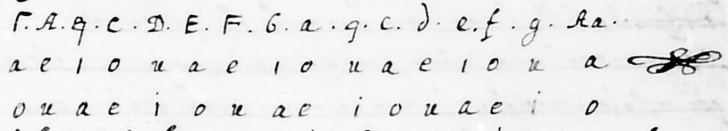 Γ. A. q. C. D. E. F. G. a. q. c. d. e. f. g. Aa.
a e ı o u a e ı o u a e ı o u a
o u a e i o u a e i o u a e i o